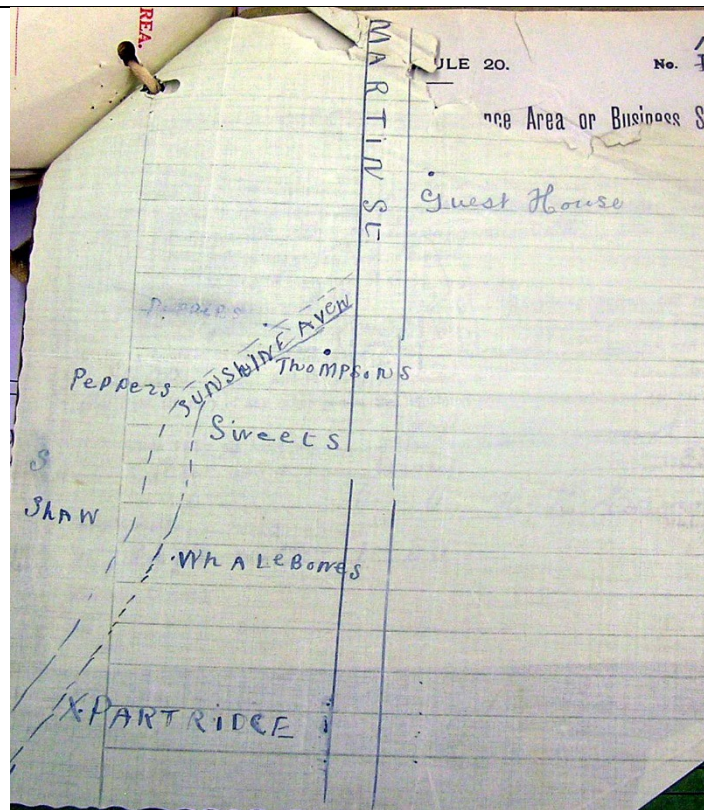 REA.
MARTIN St
ULE 20.
No.
nce Area or Business S
Guest House
Peppers
SUNSHINE AVEN
THOMPSONS
Peppers
Sweets
S
SHAW
WHALEBONES
X PARTRIDGE